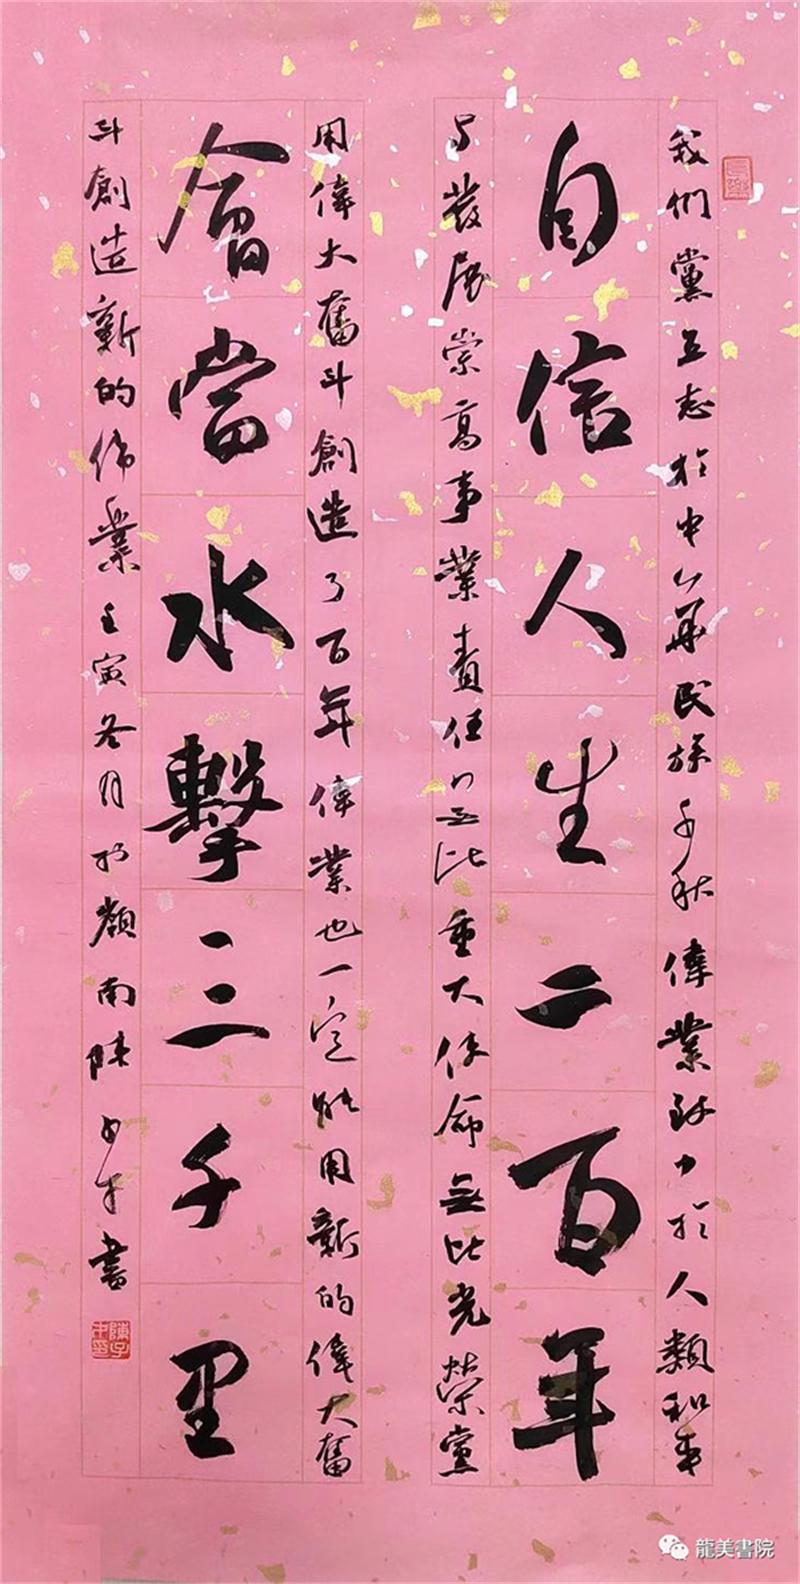 我們黨立志於中華民族千秋偉業致力於人類和平
自信人生二百年
与發展崇高事業責任無比重大使命無比光榮黨
用偉大奮斗創造了百年偉業也一定能用新的偉大奮
會當水擊三千里
斗創造新的偉業壬寅冬月於嶺南陳書
長樂
龍美書院